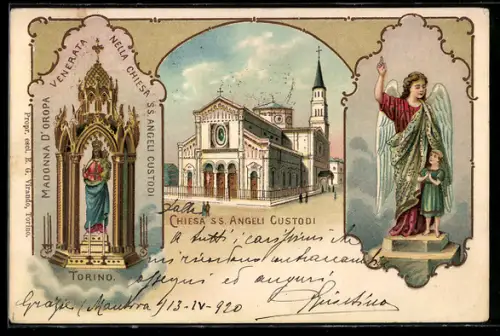 MADONNA D'OROPA VENERATA NELLA CHIESA SS. ANGELI CUSTODI
Propr. escl. E. G. Virando, Torino.
TORINO.
CHIESA S.S. ANGELI CUSTODI
Dalla
A tutti i carissimi che
ossequi ed auguri
Grazie (Mantova) 13-IV-920